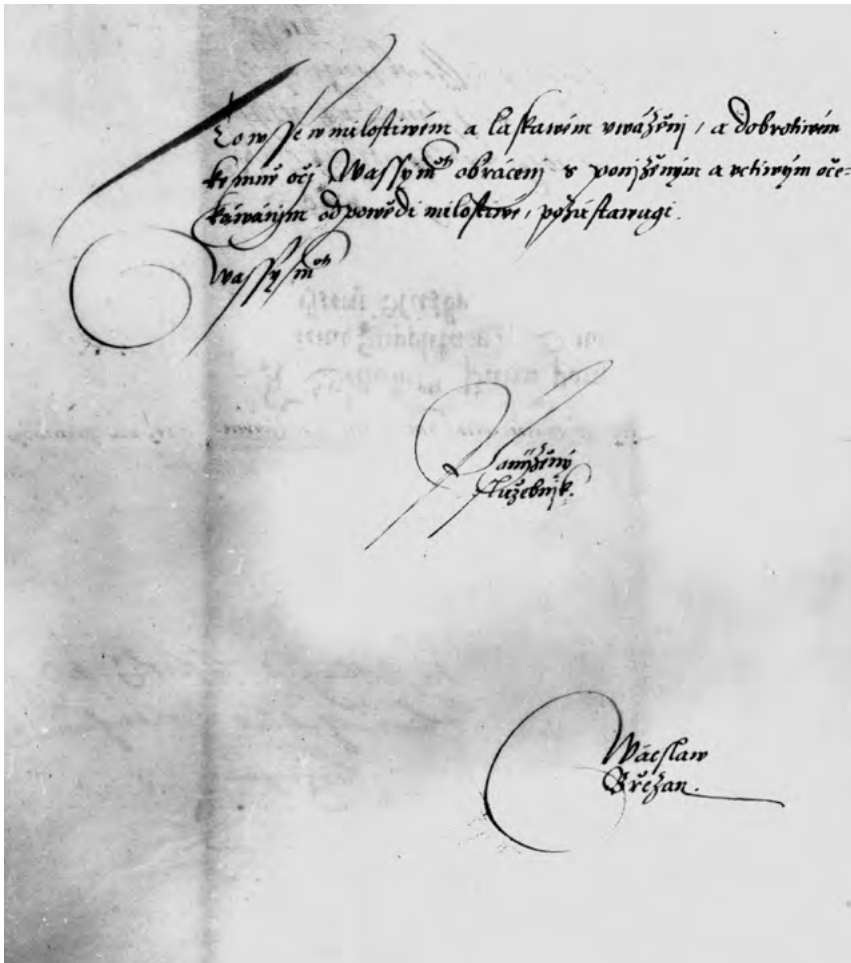 To wsse w milostiwém a laskawém vwážěnj, a dobrotiwém
ke mně očj Wassy mti obrácenj s ponjžěným a vctiwým oče-
káwánjm odpowědi milostiwé, pozůstawugi.
Wassy mti
Ponížěný
služebnjk.
Wácslaw
Břežan.